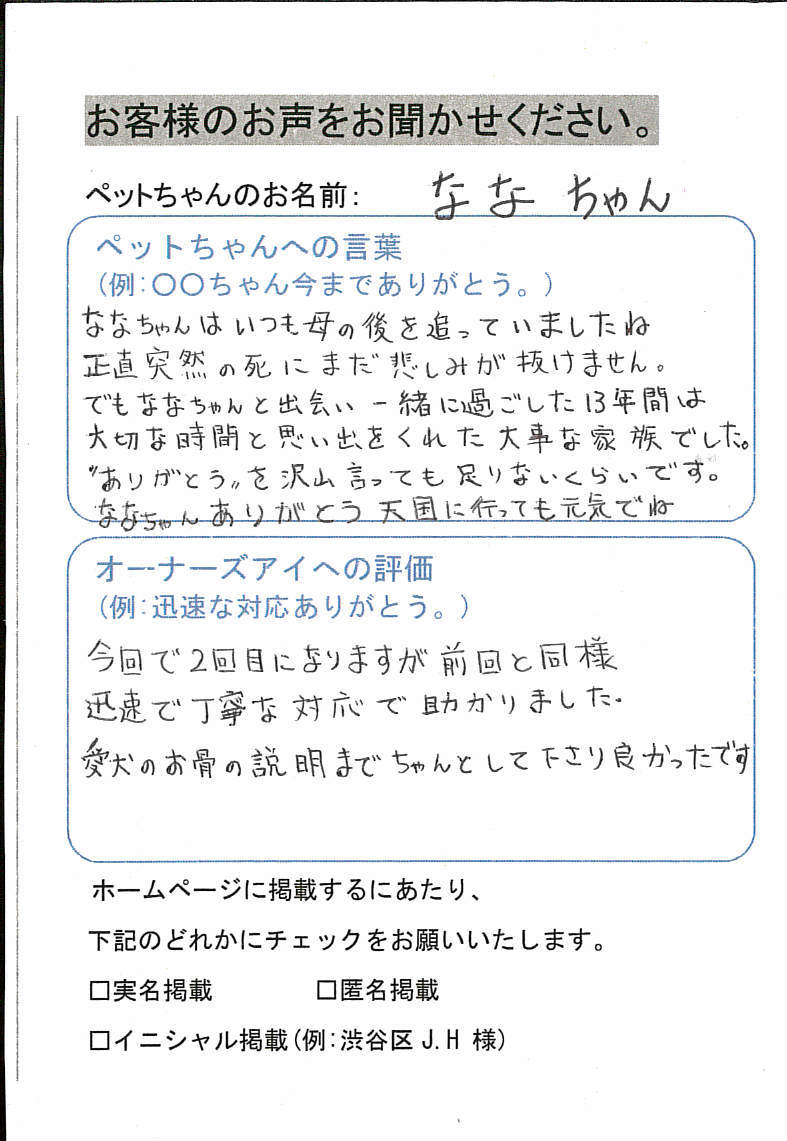 お客様のお声をお聞かせください。
ペットちゃんのお名前： ななちゃん
ペットちゃんへの言葉
（例：〇〇ちゃん今までありがとう。）
ななちゃんはいつも母の後を追っていましたね
正直突然の死にまだ悲しみが抜けません。
でもななちゃんと出会い一緒に過ごした13年間は
大切な時間と思い出をくれた大事な家族でした。
"ありがとう〟を沢山言っても足りないくらいです。
ななちゃんありがとう天国に行っても元気でね
オーナーズアイへの評価
（例：迅速な対応ありがとう。）
今回で2回目になりますが前回と同様
迅速で丁寧な対応で助かりました.
愛犬のお骨の説明までちゃんとして下さり良かったです
ホームページに掲載するにあたり、
下記のどれかにチェックをお願いいたします。
□実名掲載 □匿名掲載
□イニシャル掲載（例：渋谷区 J.H 様）